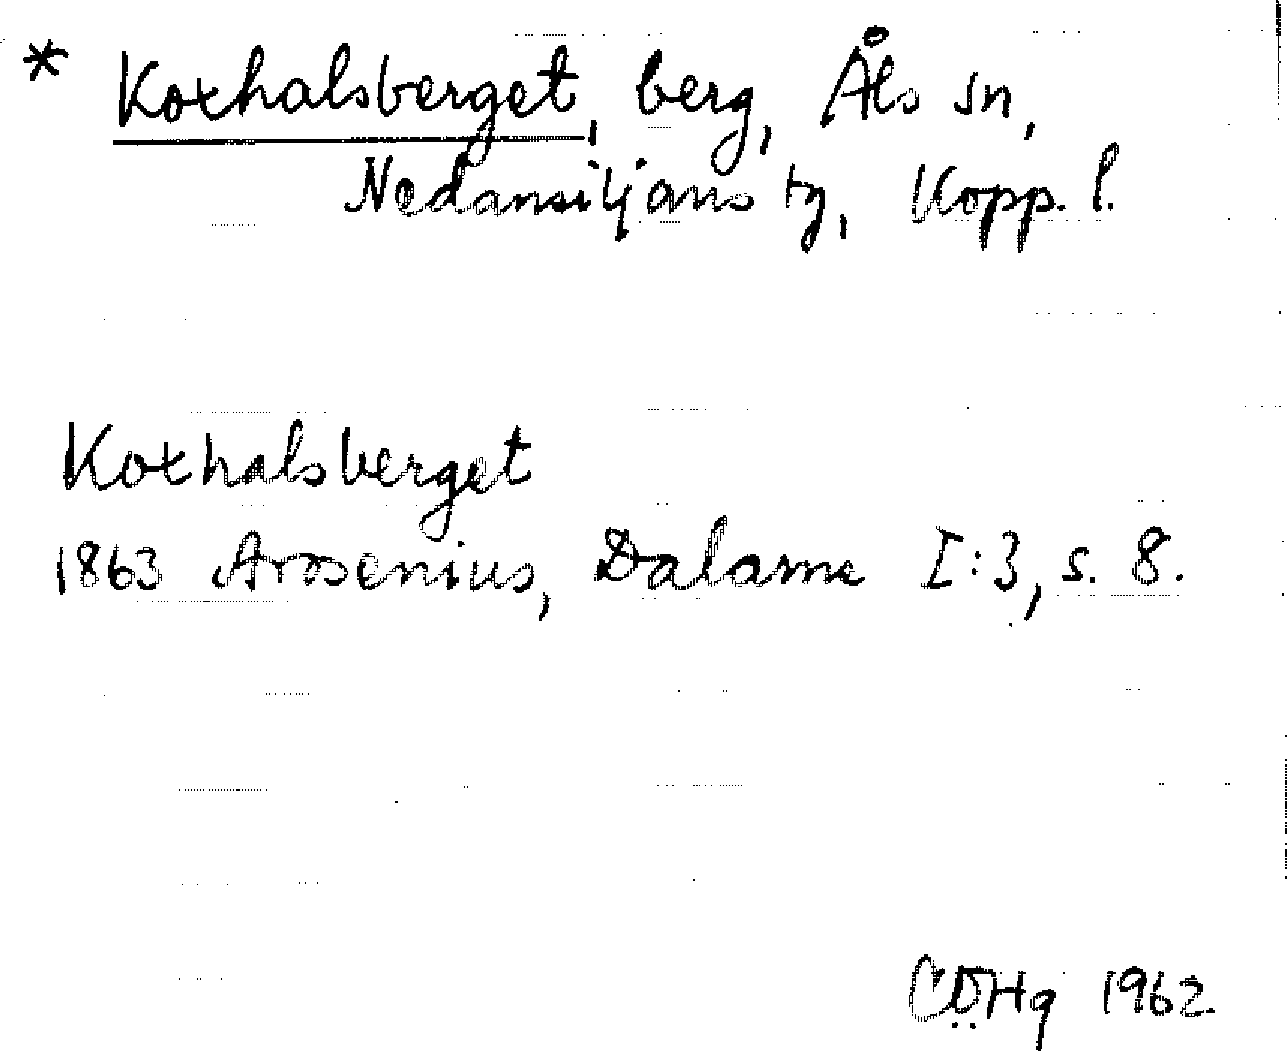 * Koxhalsberget, berg, Åls sn,
Nedansiljans tg, Kopp. l.
Koxhalsberget
1863 Arosenius, Dalarne I:3, s. 8.
1962